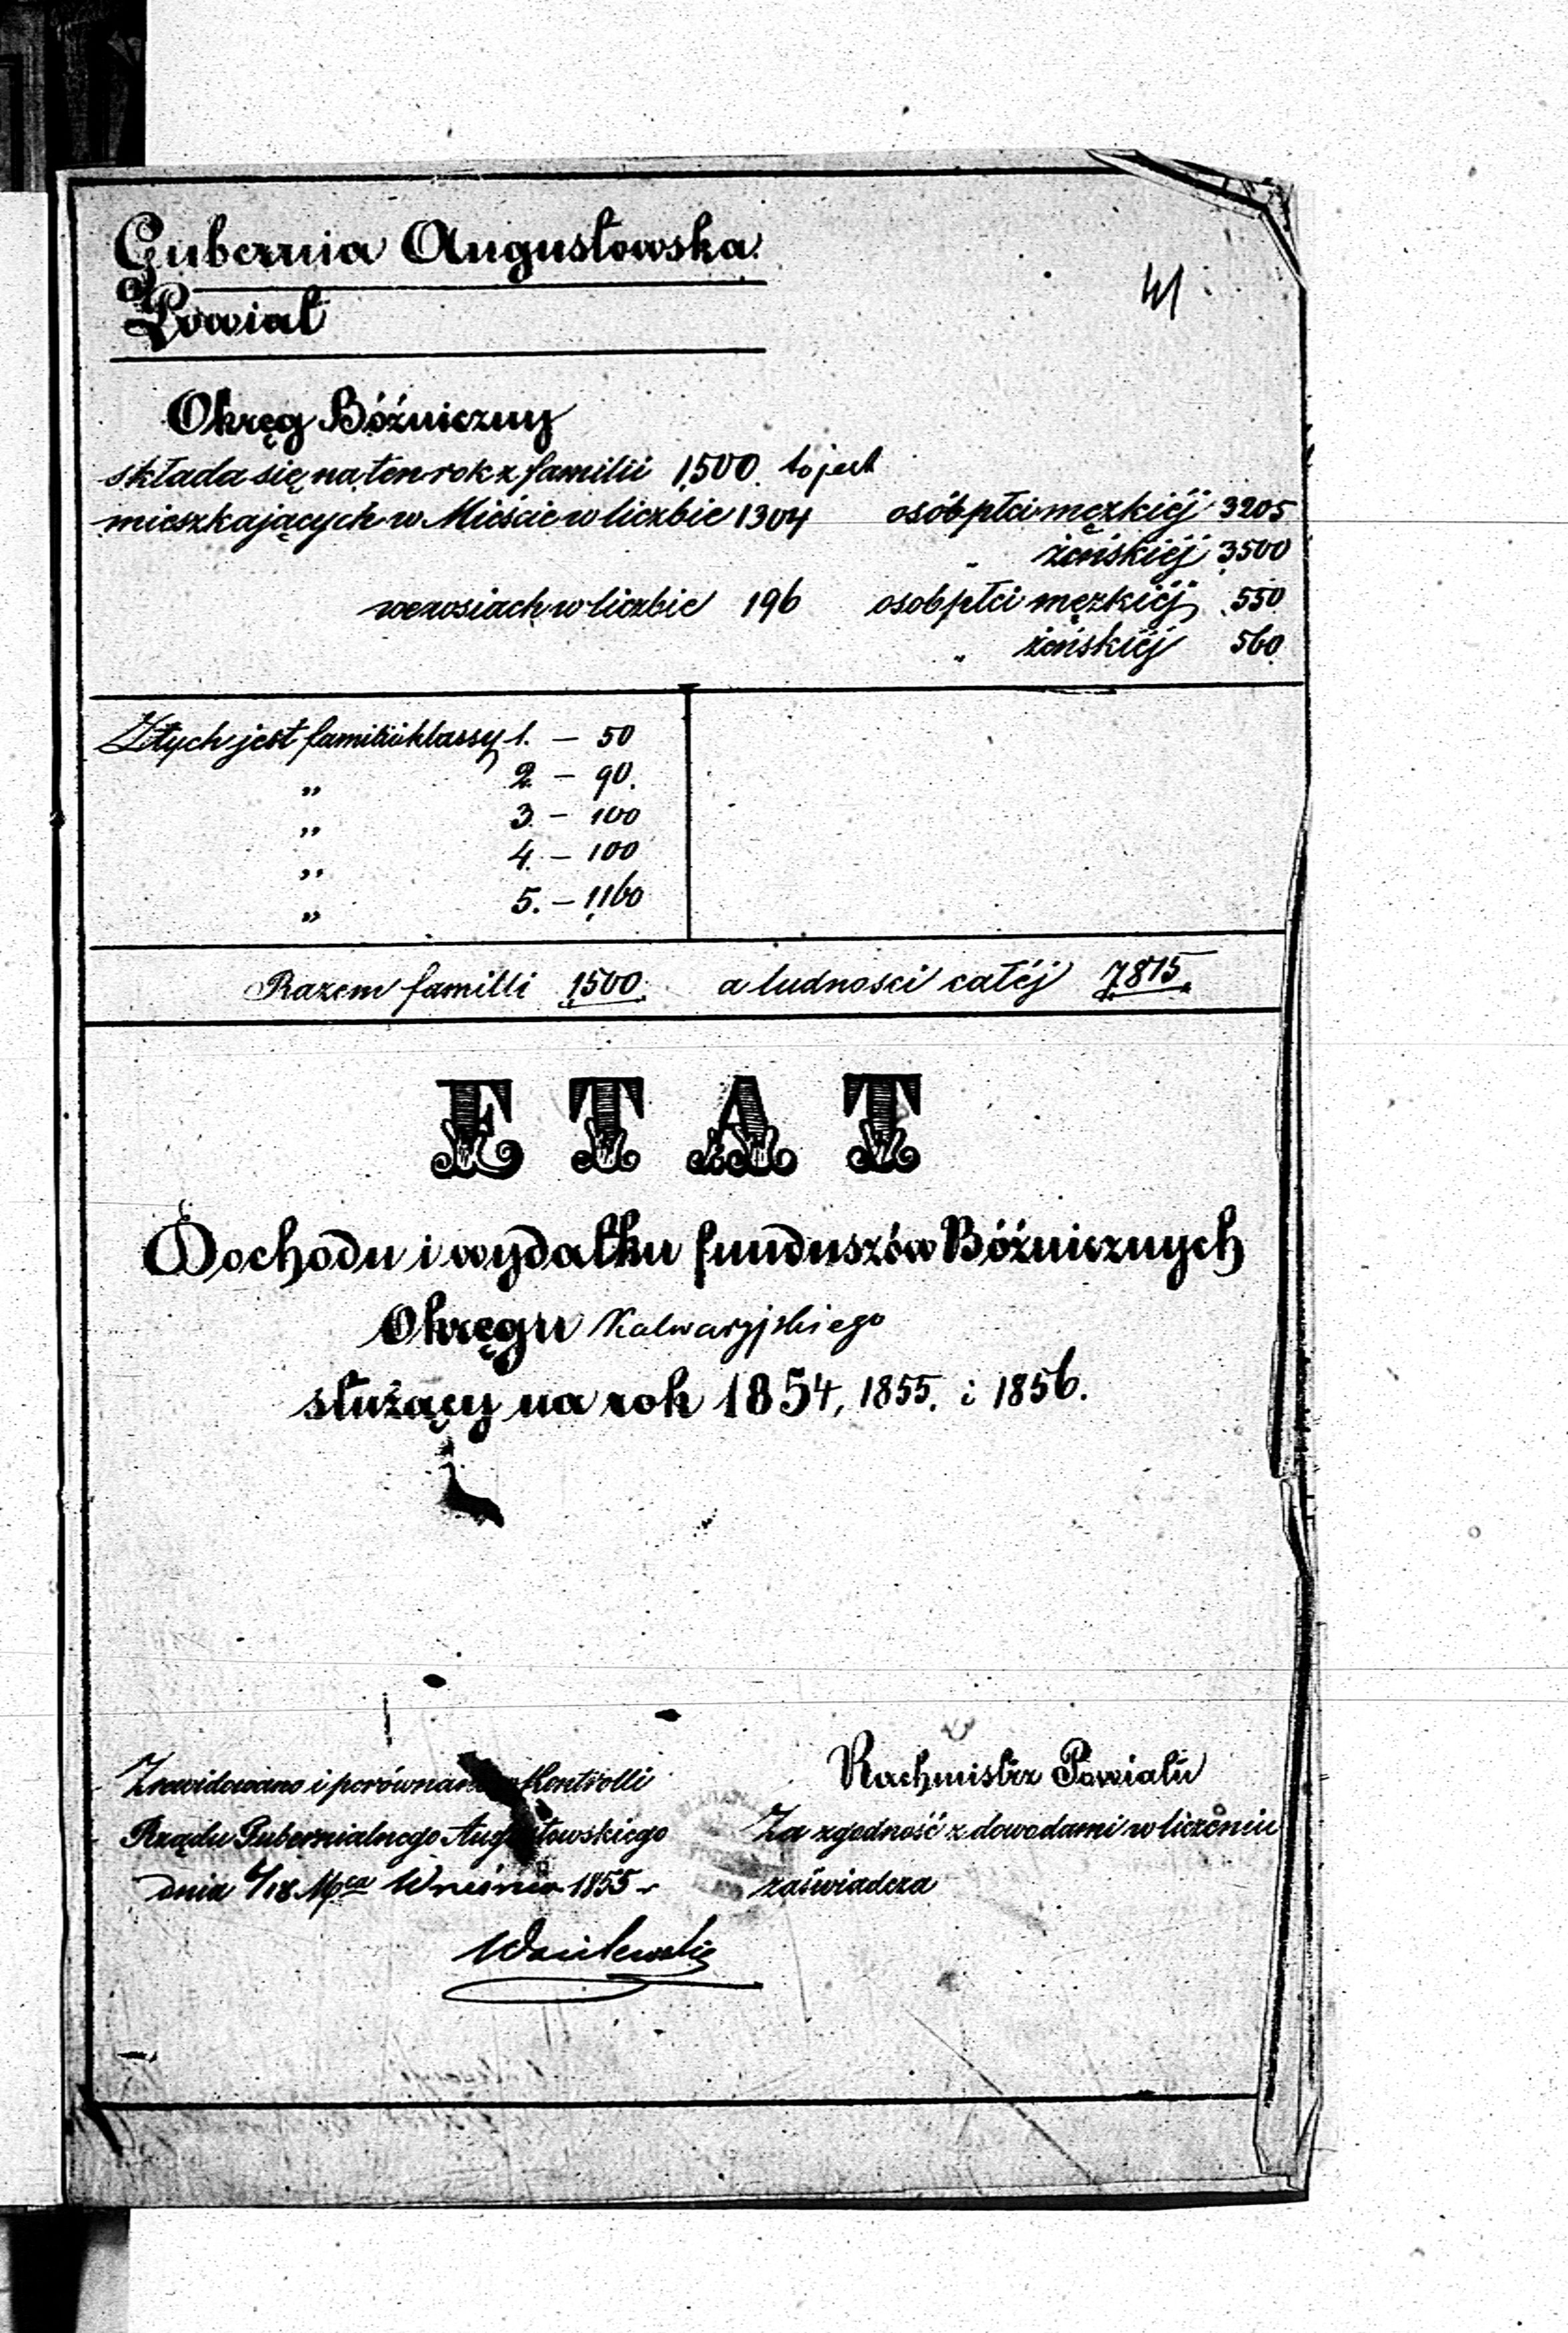 Gubernia Augustowska
Powiat
41
Okręg Bóźniczny
składa się na ten rok z familii 1500. to jest
mieszkających w Mieście w liczbie 1304 osób płci męzkiéj 3205
„ żeńskiéj 3500
we wsiach w liczbie 196 osob płci męzkiéj 550
„ żeńskiéj 560
Z tych jest familii klassy 1. – 50
„ 2 – 90.
„ 3. – 100
„ 4. – 100
„ 5. – 1160
Razem familii 1500. a ludności całéj 7815.
ETAT
Dochodu i wydatku funduszów Bóźnicznych
Okręgu Kalwaryjskiego
służący na rok 1854, 1855. i 1856.
Rachmistrz Powiatu
Zrewidowano i porównano w Kontrolli
Rządu Gubernialnego Augustowskiego
Za zgodność z dowodami w liczeniu
dnia 6/18 Mca Września 1855 r
zaświadcza
Wasilewski